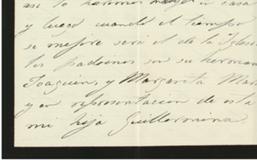 asi lo haremos en casa
y luego cuando el tiempo
se mejore será el de la Igles
los padrinos son su herman
Joaquin, y Margarita Mar
y en representacion de es a
mi hija Guillermina.